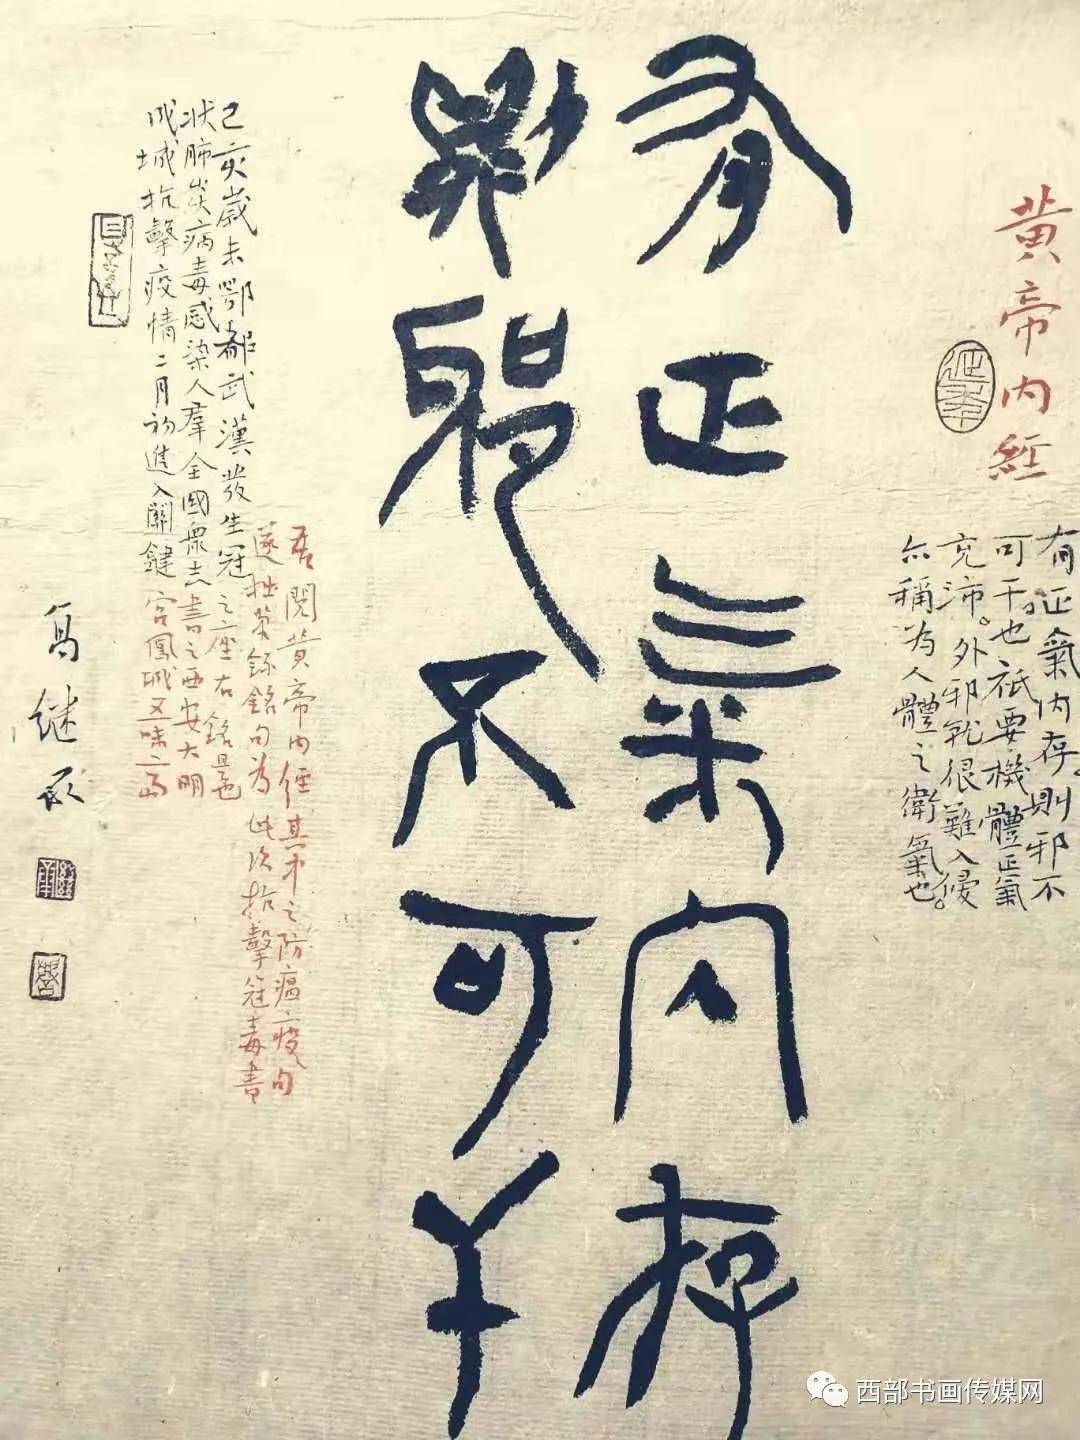 黄帝内经
有正氣内存則邪不
可干也祇要機體正氣
充沛。外邪就很難入侵
亦稱为人體之衛氣也。
有正氣内存
則邪不可干
吾閱黄帝内经其中之防瘟疫句
遂拙筆録銘句为此次抗擊冠毒書
之座右銘是也
書之西安大明
宫鳳城五味
己亥歲末鄂都武漢發生冠
状肺炎病毒感染人羣全國衆志
成城抗擊疫情二月初進入關鍵
西部书画传媒网